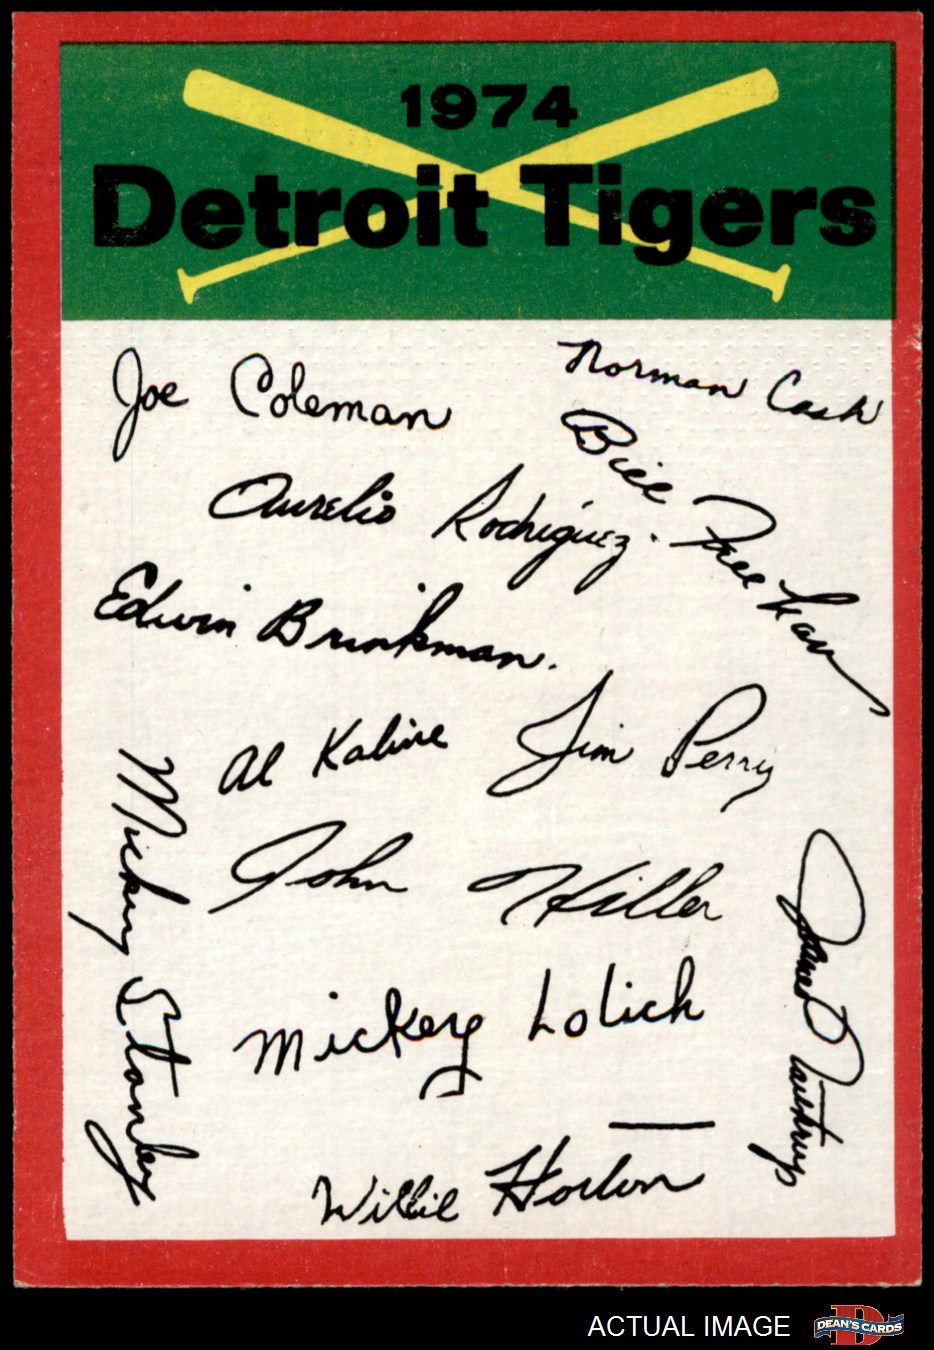 1974
Detroit Tigers
Joe Coleman
Norman Cash
Bill Freehan
Aurelio Rodriguez.
Edwin Brinkman.
Al Kaline
Jim Perry
Mickey Stanley
John Hiller
James Northrup
Mickey Lolich
Willie Horton
ACTUAL IMAGE
DEAN'S CARDS